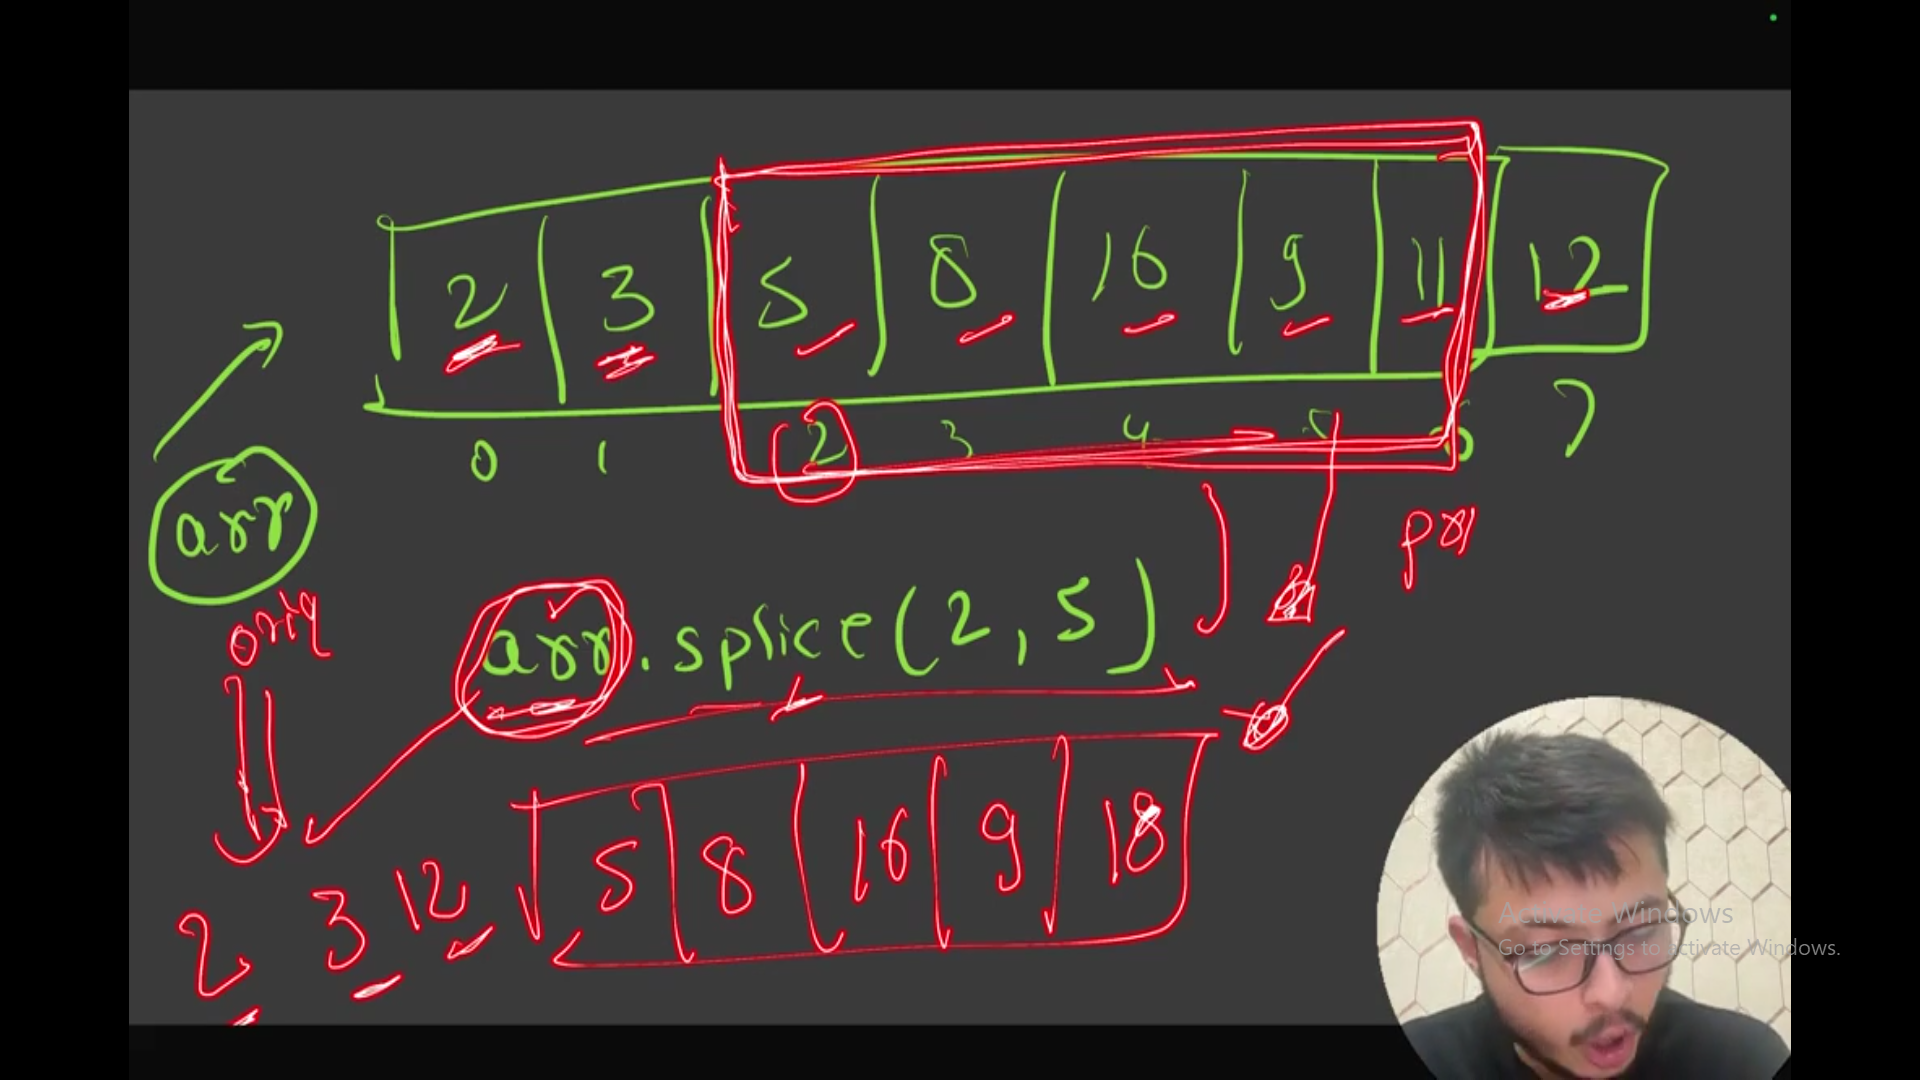 2 3 5 8 16 9 11 12
0 1 2 3 4 5 6 7
arr
orig
arr.splice(2,5)
2 3 12
5 8 16 9 18
Activate Windows
Go to Settings to activate Windows.